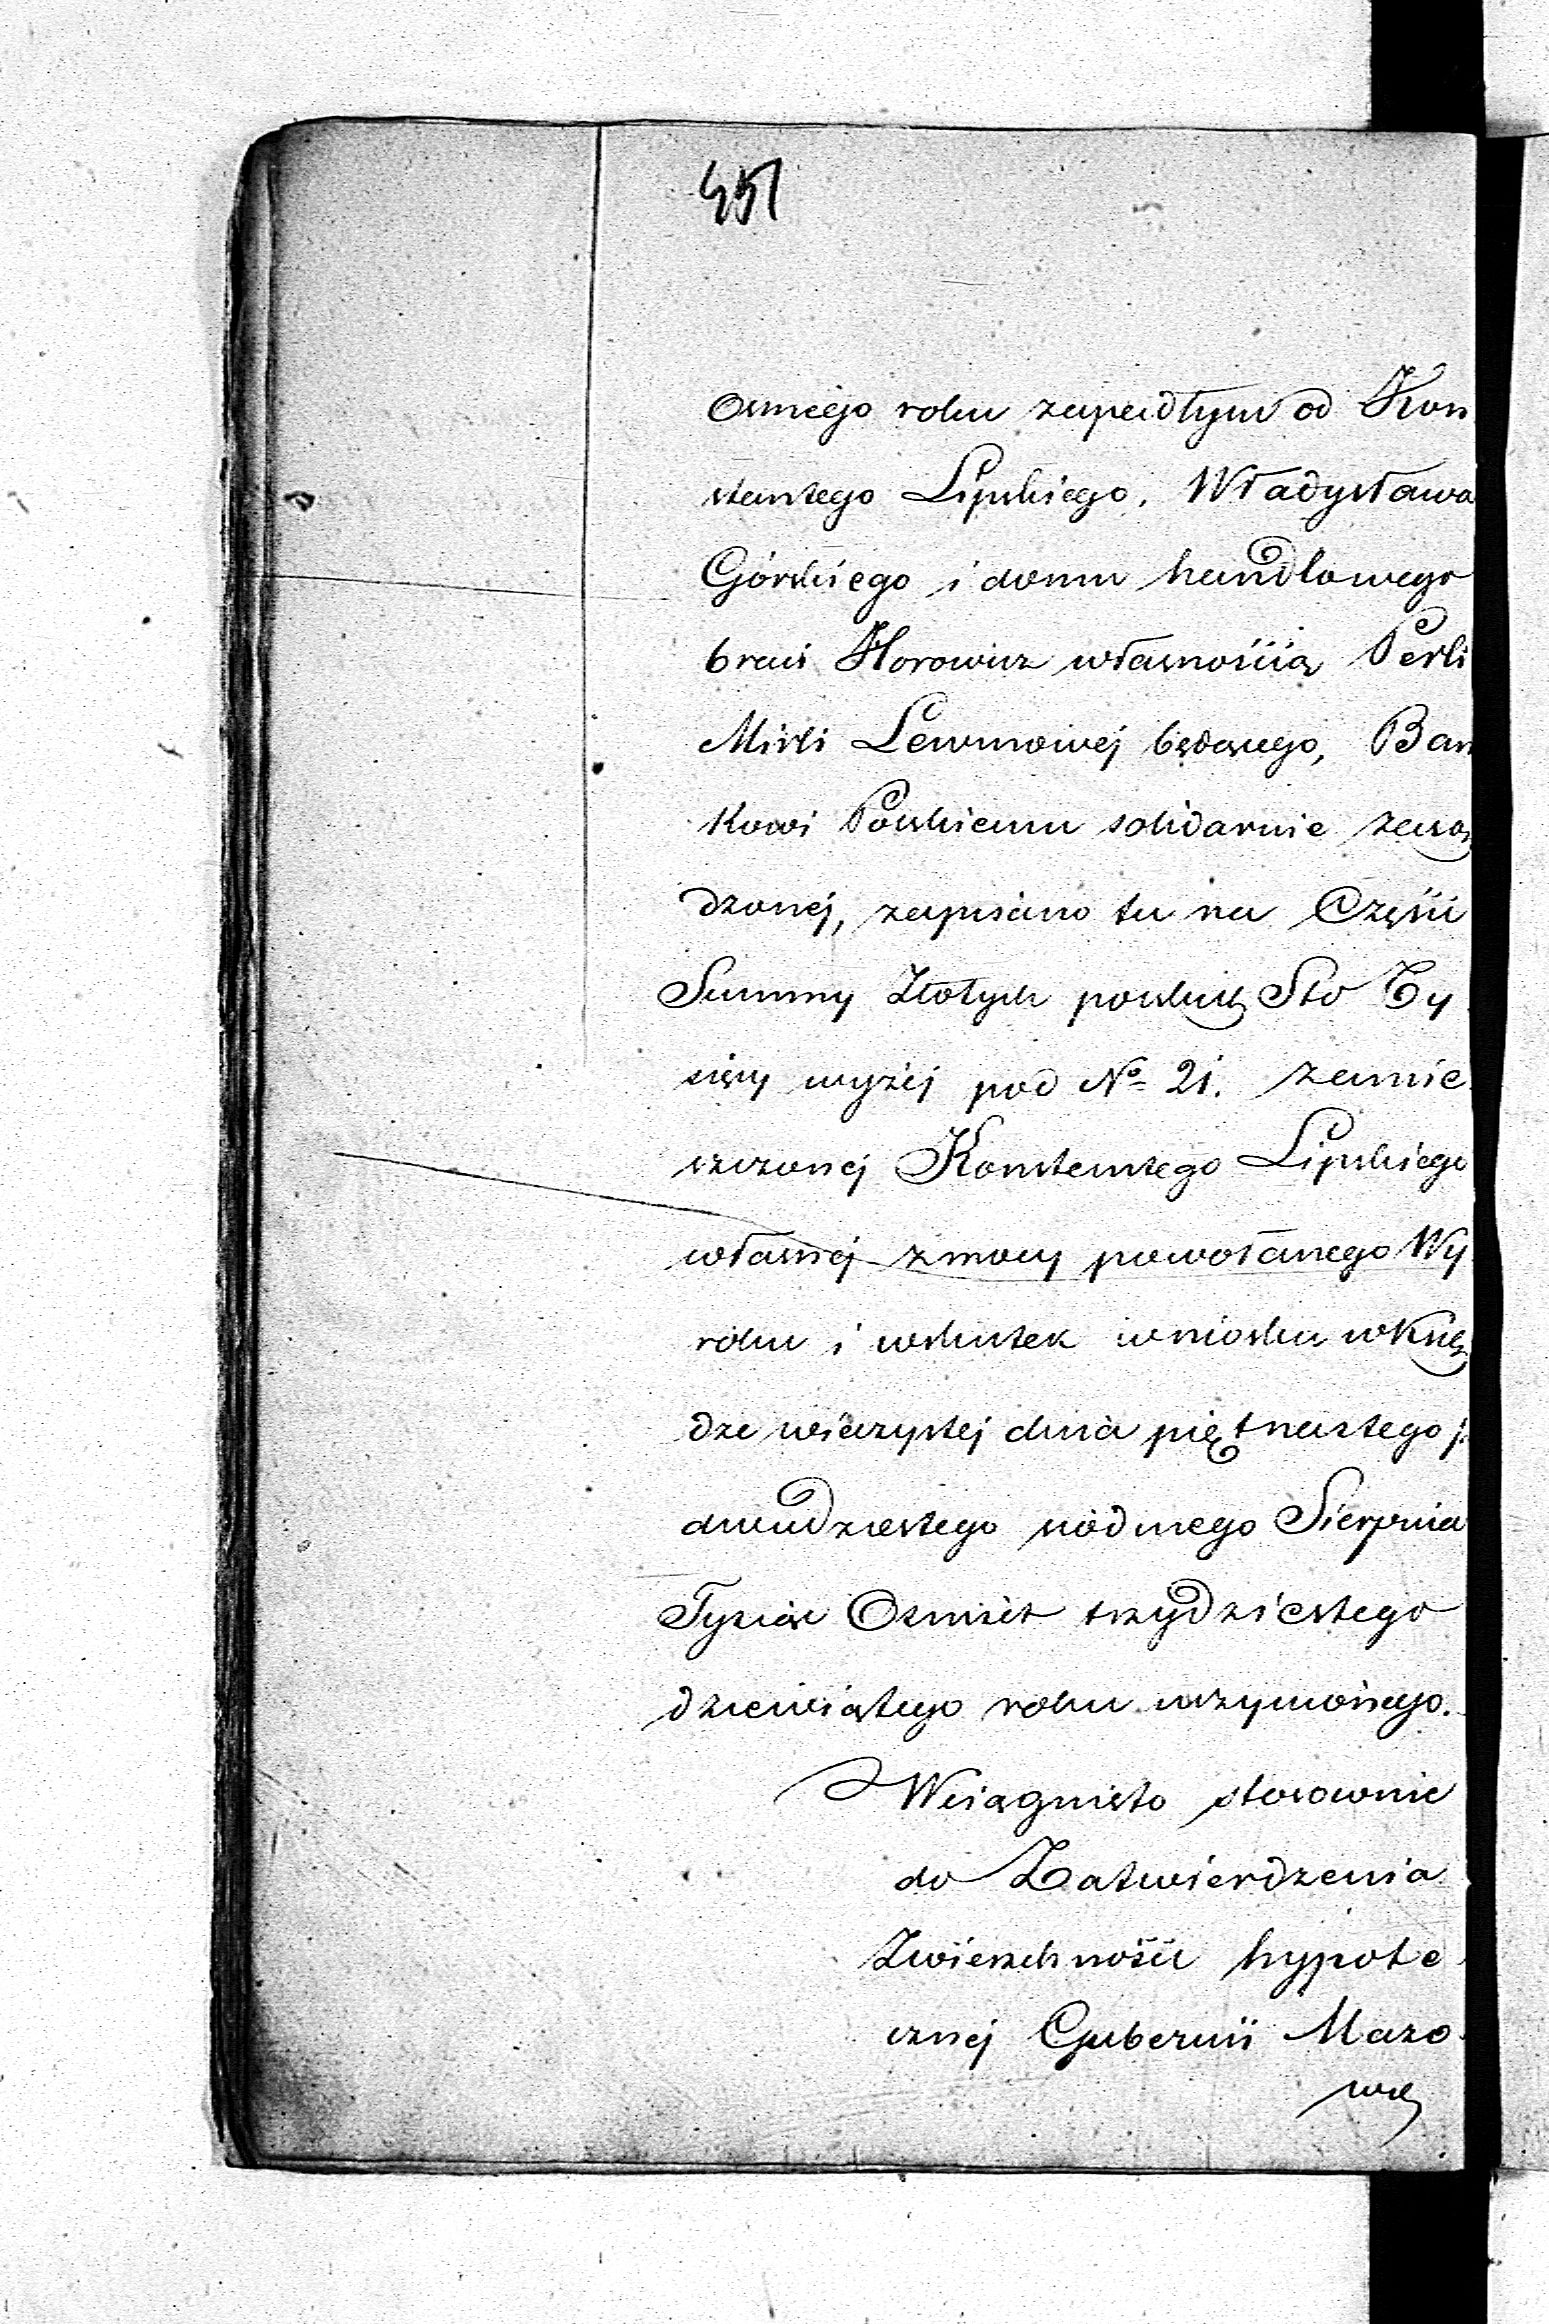 451
Osmego roku zapadłym od Kon
stantego Lipskiego, Władysława
Górskiego i domu handlowego
braci Horowicz własnością Perli
Mirli Lewinowej będącego, Ban
kowi Polskiemu solidarnie zasą
dzonej, zapisano tu na Części
Summy Złotych polskich Sto Ty
sięcy wyżej pod No 21. zamie
szczonej Konstantego Lipskiego
własnej z mocy powołanego Wy
roku i wskutek wniosku w Księ
dze wieczystej dnia piętnastego /
dwudziestego siódmego Sierpnia
Tysiąc Ośmset trzydziestego
dziewiątego roku uczynionego.
Wciągnięto stosownie
do Zatwierdzenia
Zwierzchności hypote
cznej Gubernii Mazo
wie